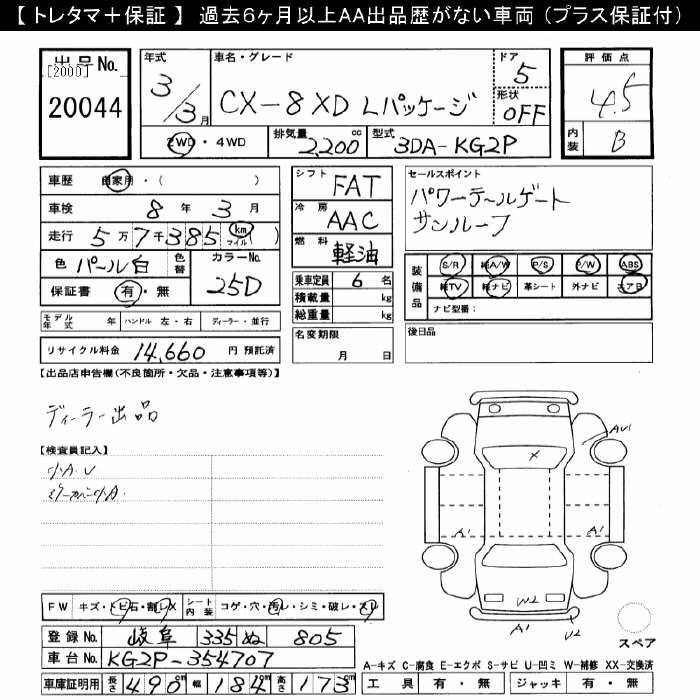 【 トレタマ＋保証 】 過去6ヶ月以上AA出品歴がない車両（プラス保証付）
出品No.
[2000]
20044
年式
3/3月
車名・グレード
CX-8 XD Lパッケージ
ドア
5
形状
OFF
評価点
4.5
内装
B
2WD・4WD
排気量
2,200 cc
型式
3DA-KG2P
車歴 自家用・（ ）
車検 8 年 3 月
走行 5万7千385 km マイル ( )
色 パール白 色替
カラーNo. 25D
保証書 有・無
シフト FAT
冷房 AAC
燃料 軽油
乗車定員 6 名
積載量 kg
総重量 kg
名変期限
月 日
セールスポイント
パワーテールゲート
サンルーフ
装備品
S/R 純A/W P/S P/W ABS
純TV 純ナビ 革シート 外ナビ エアB
ナビ型番：
後日品
モデル年式 年 ハンドル 左・右 ディーラー・並行
リサイクル料金 14,660 円 預託済
【出品店申告欄（不良箇所・欠品・注意事項等）】
ディーラー出品
【検査員記入】
小A.U
ミラーカバー小A.
AU1
X
A1
A1
W2
A1
U2
スペア
FW キズ・トビ石・割レX シート内装 コゲ・穴・汚レ・シミ・破レ・スレ
登録No. 岐阜 335 ぬ 805
車台No. KG2P-354707
車庫証明用 長さ 490cm 幅 184cm 高さ 173cm
A-キズ C-腐食 E-エクボ S-サビ U-凹ミ W-補修 XX-交換済
工具 有・無 ジャッキ 有・無